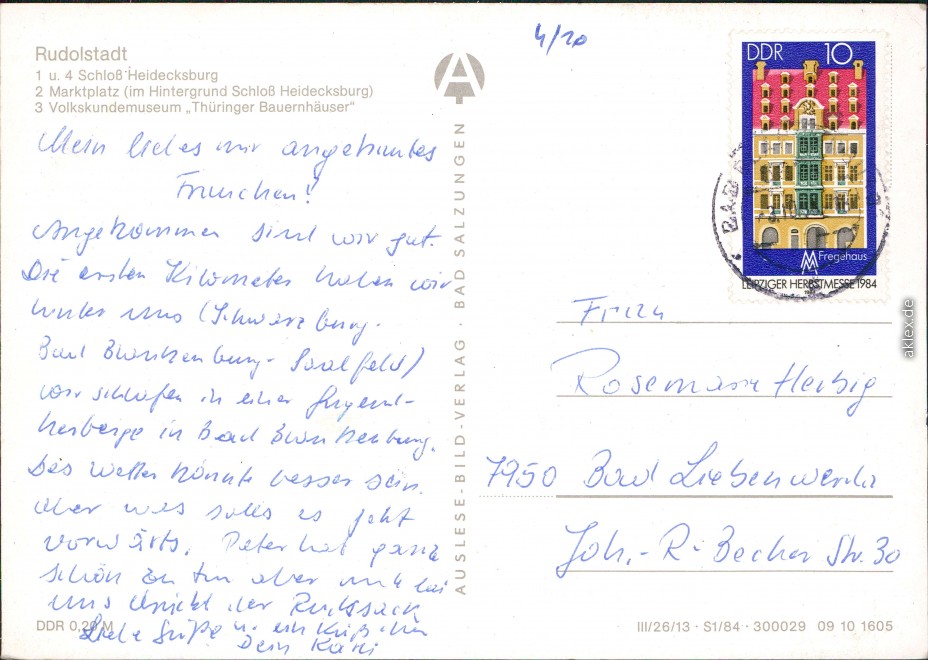 Rudolstadt
1 u. 4 Schloß Heidecksburg
2 Marktplatz (im Hintergrund Schloß Heidecksburg)
3 Volkskundemuseum „Thüringer Bauernhäuser"
4/20
DDR 10
Fregehaus
LEIPZIGER HERBSTMESSE 1984
Mein liebes mir angetrautes
Frauchen!
Angekommen sind wir gut.
Die ersten Kilometer haben wir
hinter uns (Schwarzburg-
Bad Blankenburg-Saalfeld)
wir schlafen in einer Jugend-
herberge in Bad Blankenburg.
Das Wetter könnte besser sein.
aber was solls es geht
vorwärts. Peter hat ganz
schön zu tun aber
uns drückt der Rucksack
Liebe Grüße u. ein Küßchen
Dein
AUSLESE-BILD-VERLAG · BAD SALZUNGEN
Frau
Rosemarie Herbig
7950 Bad Liebenwerda
Joh.-R. Becher Str. 30
DDR 0,20 M
III/26/13 · S1/84 · 300029 09 10 1605
aklex.de